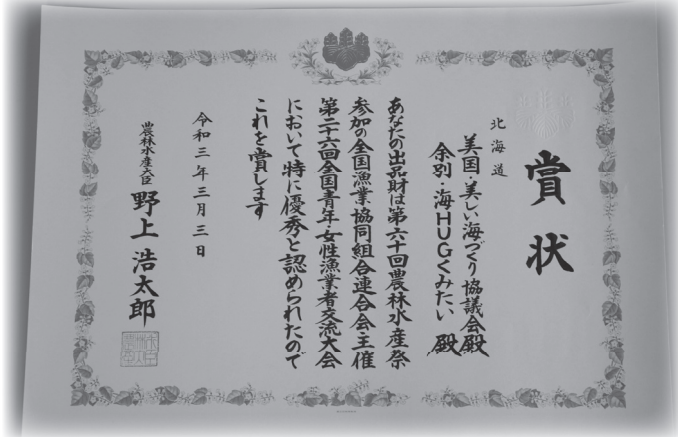 賞状
北海道
美国・美しい海づくり協議会殿
余別・海HUGくみたい 殿
あなたの出品財は第六十回農林水産祭
参加の全国漁業協同組合連合会主催
第二十六回全国青年・女性漁業者交流大会
において特に優秀と認められたので
これを賞します
令和三年三月三日
農林水産大臣 野上浩太郎